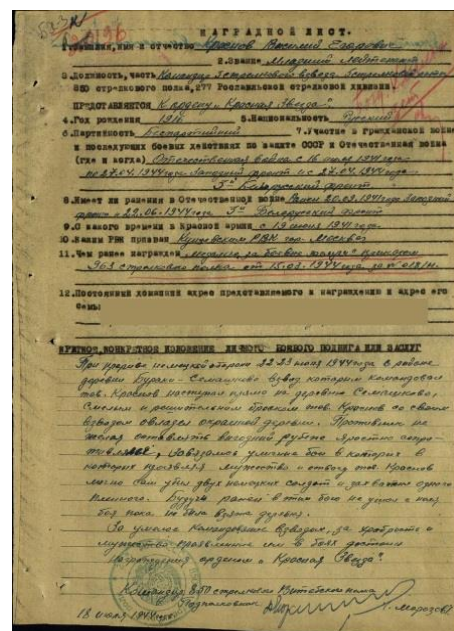 НАГРАДНОЙ ЛИСТ.
1. Фамилия, имя и отчество Краснов Василий Егорович
2. Звание Младший Лейтенант
3. Должность, часть Командир стрелкового взвода
850 стрелкового полка, 277 Рославльской стрелковой дивизии
ПРЕДСТАВЛЯЕТСЯ К ордену "Красная Звезда".
4. Год рождения 1918 5. Национальность Русский
6. Партийность Беспартийный 7. Участие в Гражданской войне
и последующих боевых действиях по защите СССР и Отечественная война
(где и когда) Отечественная война с 16 1941 года
по 27.04.1944 года фронт и с 27.04.1944 года
3й Белорусский фронт
8. Имеет ли ранения в Отечественной войне Ранен 20.03.1942 года Западный
фронт 23.06.1944 года 3й Белорусский фронт
9. С какого времени в Красной армии с 19 июня 1941 года
10. Каким РВК призван РВК гор. Москвы
11. Чем ранее награжден медалью "За боевые заслуги" приказом
963 стрелкового полка от 15.03.1944 года за № 012/н.
12. Постоянный домашний адрес представляемого к награждению и адрес его
семьи
КРАТКОЕ, КОНКРЕТНОЕ ИЗЛОЖЕНИЕ ЛИЧНОГО БОЕВОГО ПОДВИГА ИЛИ ЗАСЛУГ
При прорыве немецкой обороны 22-23 июня 1944 года в районе
деревни Бураки - Семашково взвод которым командовал
тов. Краснов наступал прямо на деревню Семашково,
Смелым и решительным броском тов. Краснов со своим
взводом овладел окраиной деревни. Противник не
желая оставлять выгодный рубеж яростно сопро-
тивлялся, Завязались уличные бои в которых
проявляя мужество и отвагу тов. Краснов
лично сам убил двух немецких солдат и захватил одного
пленного. Будучи ранен в этом бою не ушел с поля
боя пока не была взята деревня.
За умелое командование взводом, за храбрость и
мужество проявленные им в боях достоин
награждения орденом "Красная Звезда".
Командир 850 стрелкового Витебского полка
Подполковник Морозов
18 июля 1944 года